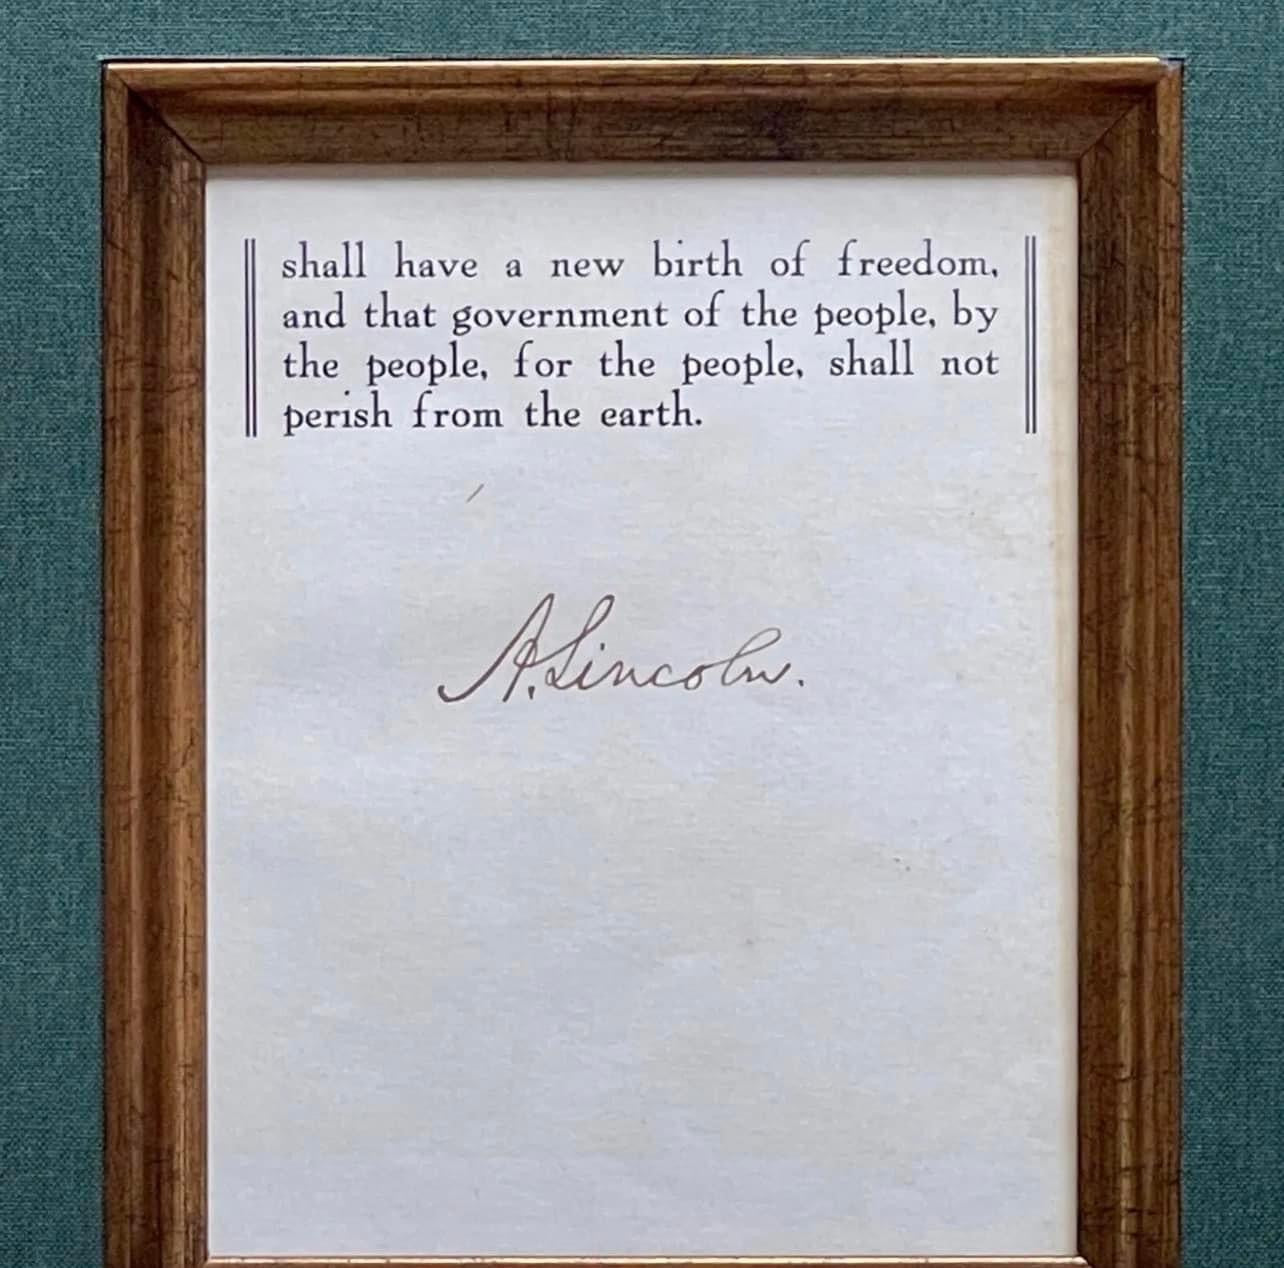 shall have a new birth of freedom,
and that government of the people, by
the people, for the people, shall not
perish from the earth.
A. Lincoln.